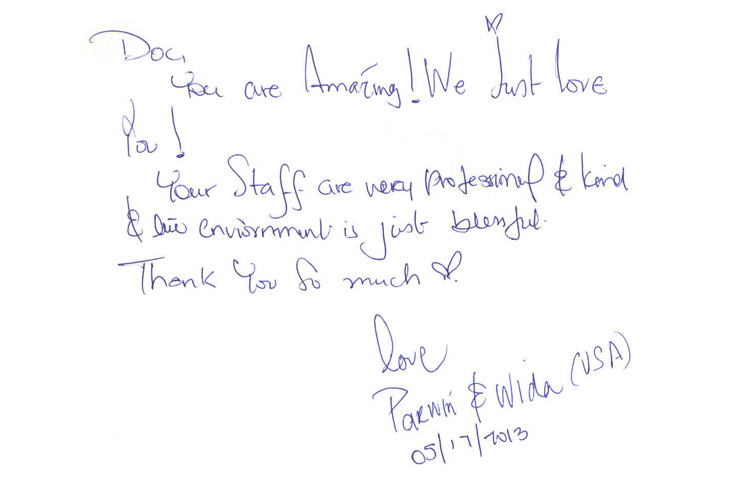 Doc,
You are Amazing! We Just love
You!
Your Staff are very professional & kind
& enviornment is just blessful.
Thank You So much ♡.
love
Parwin & Wida (USA)
05/17/2013